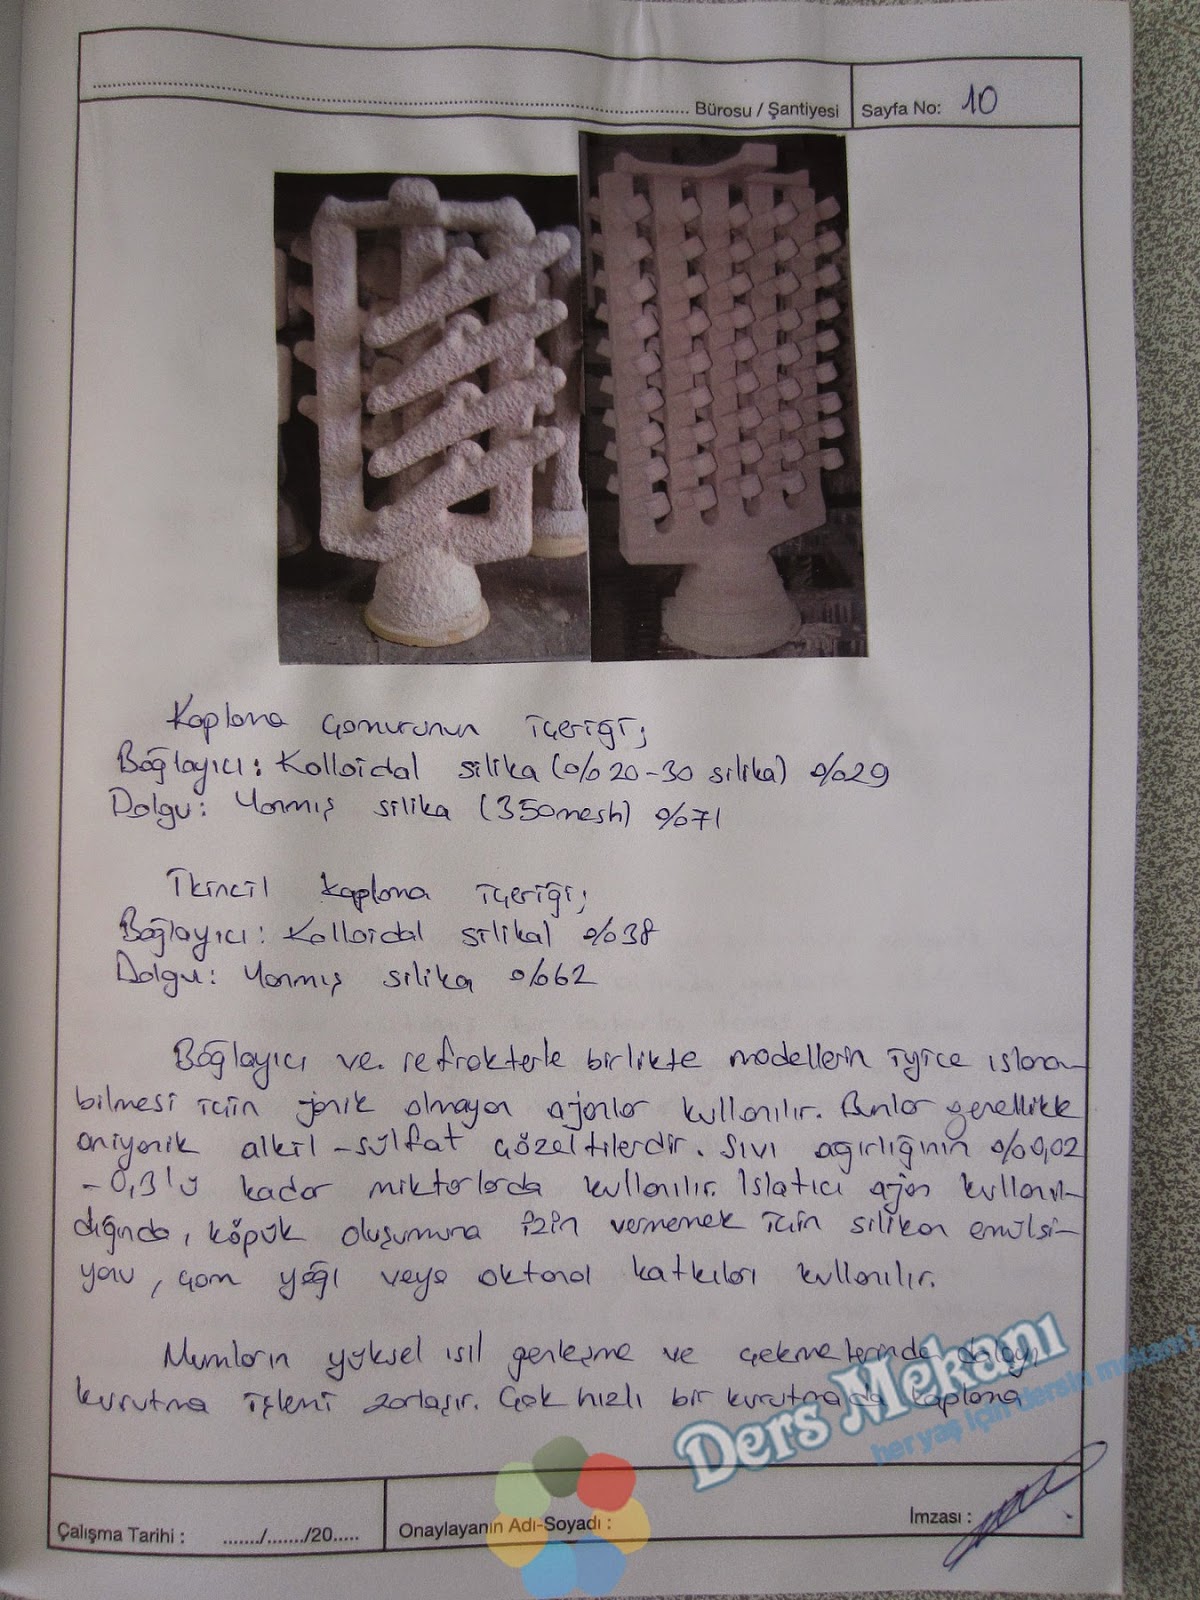 Bürosu / Şantiyesi
Sayfa No: 10
Kaplama çamurunun içeriği;
Bağlayıcı: Kolloidal silika (%20-30 silika) %29
Dolgu: Yanmış silika (350mesh) %71
İkincil kaplama içeriği;
Bağlayıcı: Kolloidal silika) %38
Dolgu: Yanmış silika %62
Bağlayıcı ve refrakterle birlikte modellerin iyice ıslana-
bilmesi için iyonik olmayan ajanlar kullanılır. Bunlar genellikle
aniyonik alkil-sülfat çözeltilerdir. Sıvı ağırlığının %0,02
-0,3'ü kadar miktarlarda kullanılır. Islatıcı ajan kullanıl-
dığında, köpük oluşumuna izin vermemek için silikon emülsi-
yonu, çam yağı veya oktanol katkıları kullanılır.
Mumların yüksel ısıl genleşme ve çekmelerinde dolayı
kurutma işlemi zorlaşır. Çok hızlı bir kurutmada kaplama
Ders Mekanı
her yaş için dersin mekanı
Çalışma Tarihi : ....../......./20.....
Onaylayanın Adı-Soyadı :
İmzası :